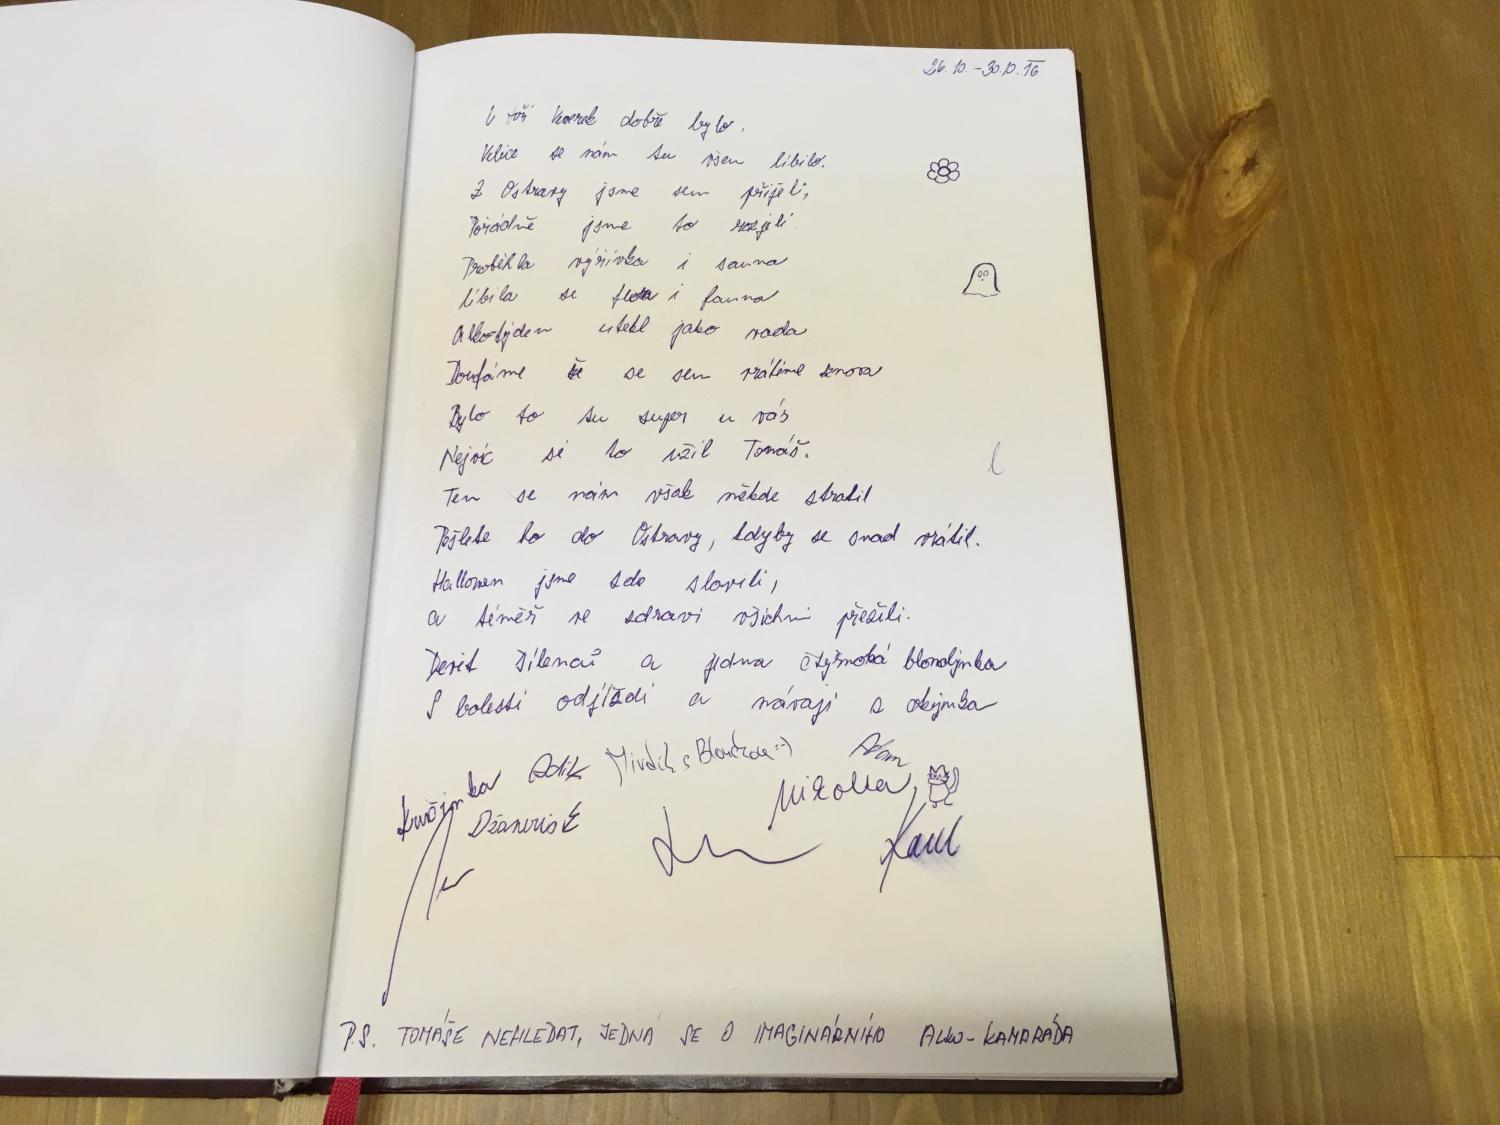 26.10.-30.10.16
U tří kverek dobře bylo,
Velice se nám tu všem líbilo.
Z Ostravy jsme sem přijeli,
Pořádně jsme to rozjeli.
Proběhla výřivka i sauna
líbila se flora i fauna
Alko-týden utekl jako voda
Doufáme že se sem vrátíme znova
Bylo to tu super u vás
Nejvíc si to užil Tomáš.
Ten se nám však někde stratil
Pošlete ho do Ostravy, kdyby se snad vrátil.
Hallowen jsme zde slavili,
a téměř ve zdraví všichni přežili.
Devět Dílenců a jedna čtyřnohá blondýnka
S bolestí odjíždí a mávají z okýnka
Adam
Kristýnka Adik Mivalík s Blonckou :-)
Nikolka
Džanvisk
Karel
P.S. TOMÁŠE NEHLEDAT, JEDNÁ SE O IMAGINÁRNÍHO ALKO-KAMARÁDA